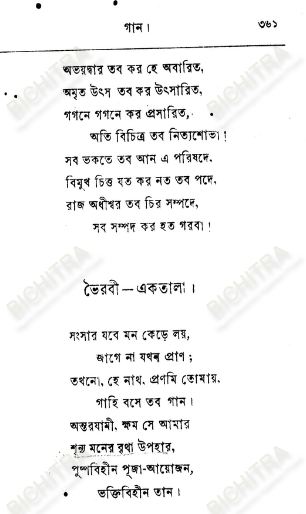 গান।
৩৬১
অভয়দ্বার তব কর হে অবারিত,
অমৃত উৎস তব কর উৎসারিত,
গগনে গগনে কর প্রসারিত,
অতি বিচিত্র তব নিত্যশোভা!
সব ভকতে তব আন এ পরিষদে,
বিমুখ চিত্ত যত কর নত তব পদে,
রাজ অধীশ্বর তব চির সম্পদে,
সব সম্পদ কর হত গরবা!
ভৈরবী—একতালা।
সংসার যবে মন কেড়ে লয়,
জাগে না যখন প্রাণ;
তখনো, হে নাথ, প্রণমি তোমায়,
গাহি বসে তব গান।
অন্তরযামী, ক্ষম সে আমার
শূন্য মনের বৃথা উপহার,
পুষ্পবিহীন পূজা-আয়োজন,
ভক্তিবিহীন তান।
BICHITRA
BICHITRA
BICHITRA
BICHITRA
BICHITRA
BICHITRA